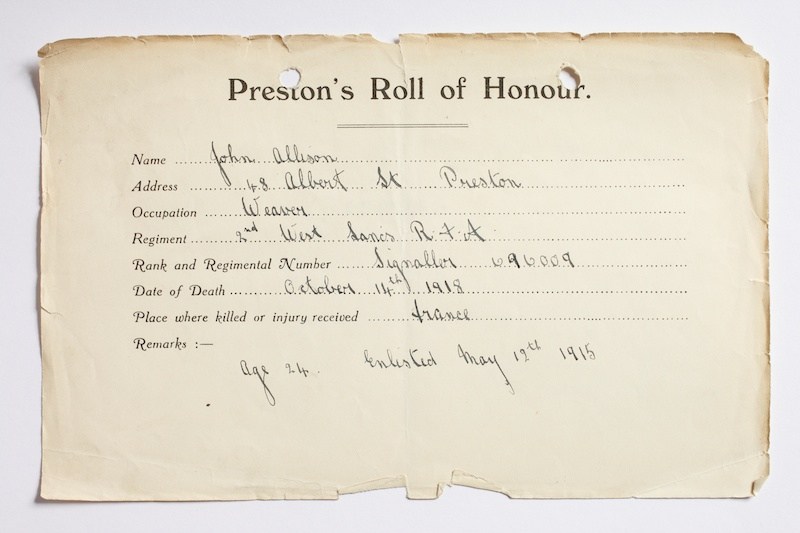 Preston's Roll of Honour.
Name John Allison
Address 48 Albert St Preston
Occupation Weaver
Regiment 2nd West Lancs R.F.A
Rank and Regimental Number Signaller 696009
Date of Death October 14th 1918
Place where killed or injury received France
Remarks :—
Age 24. Enlisted May 12th 1915